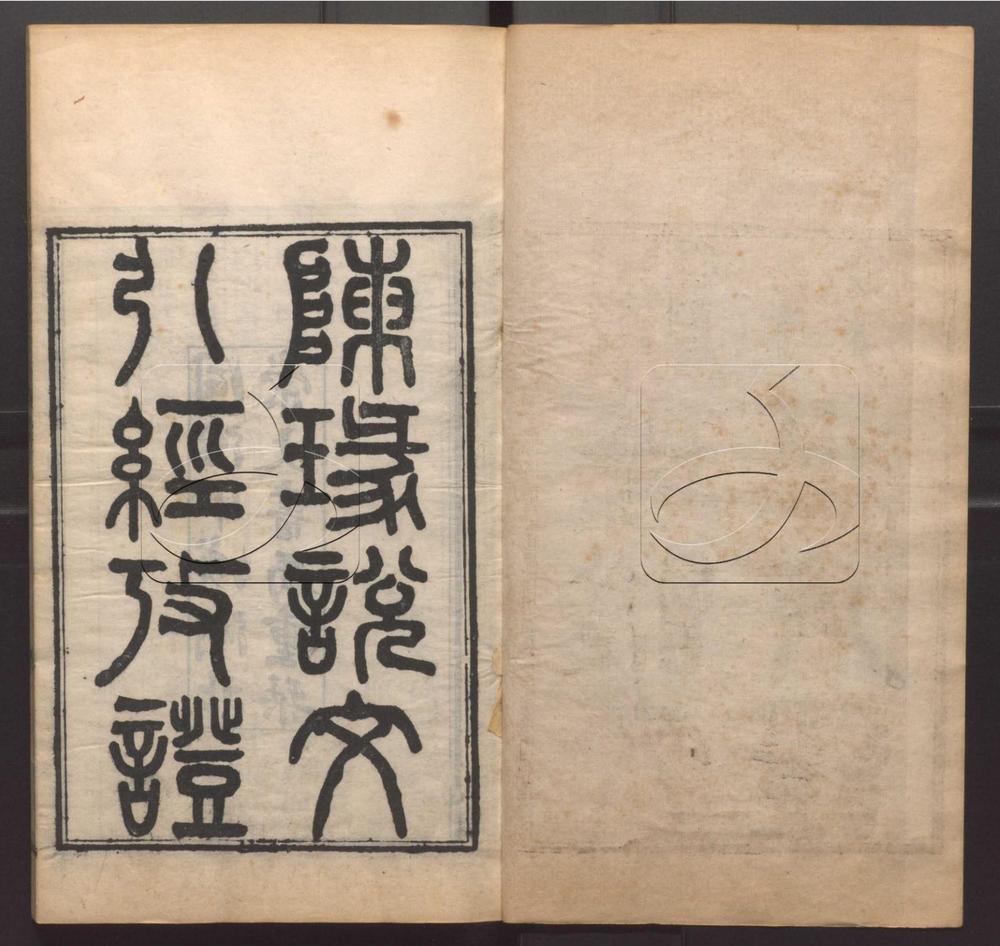 陳瑑說文
引經攷證